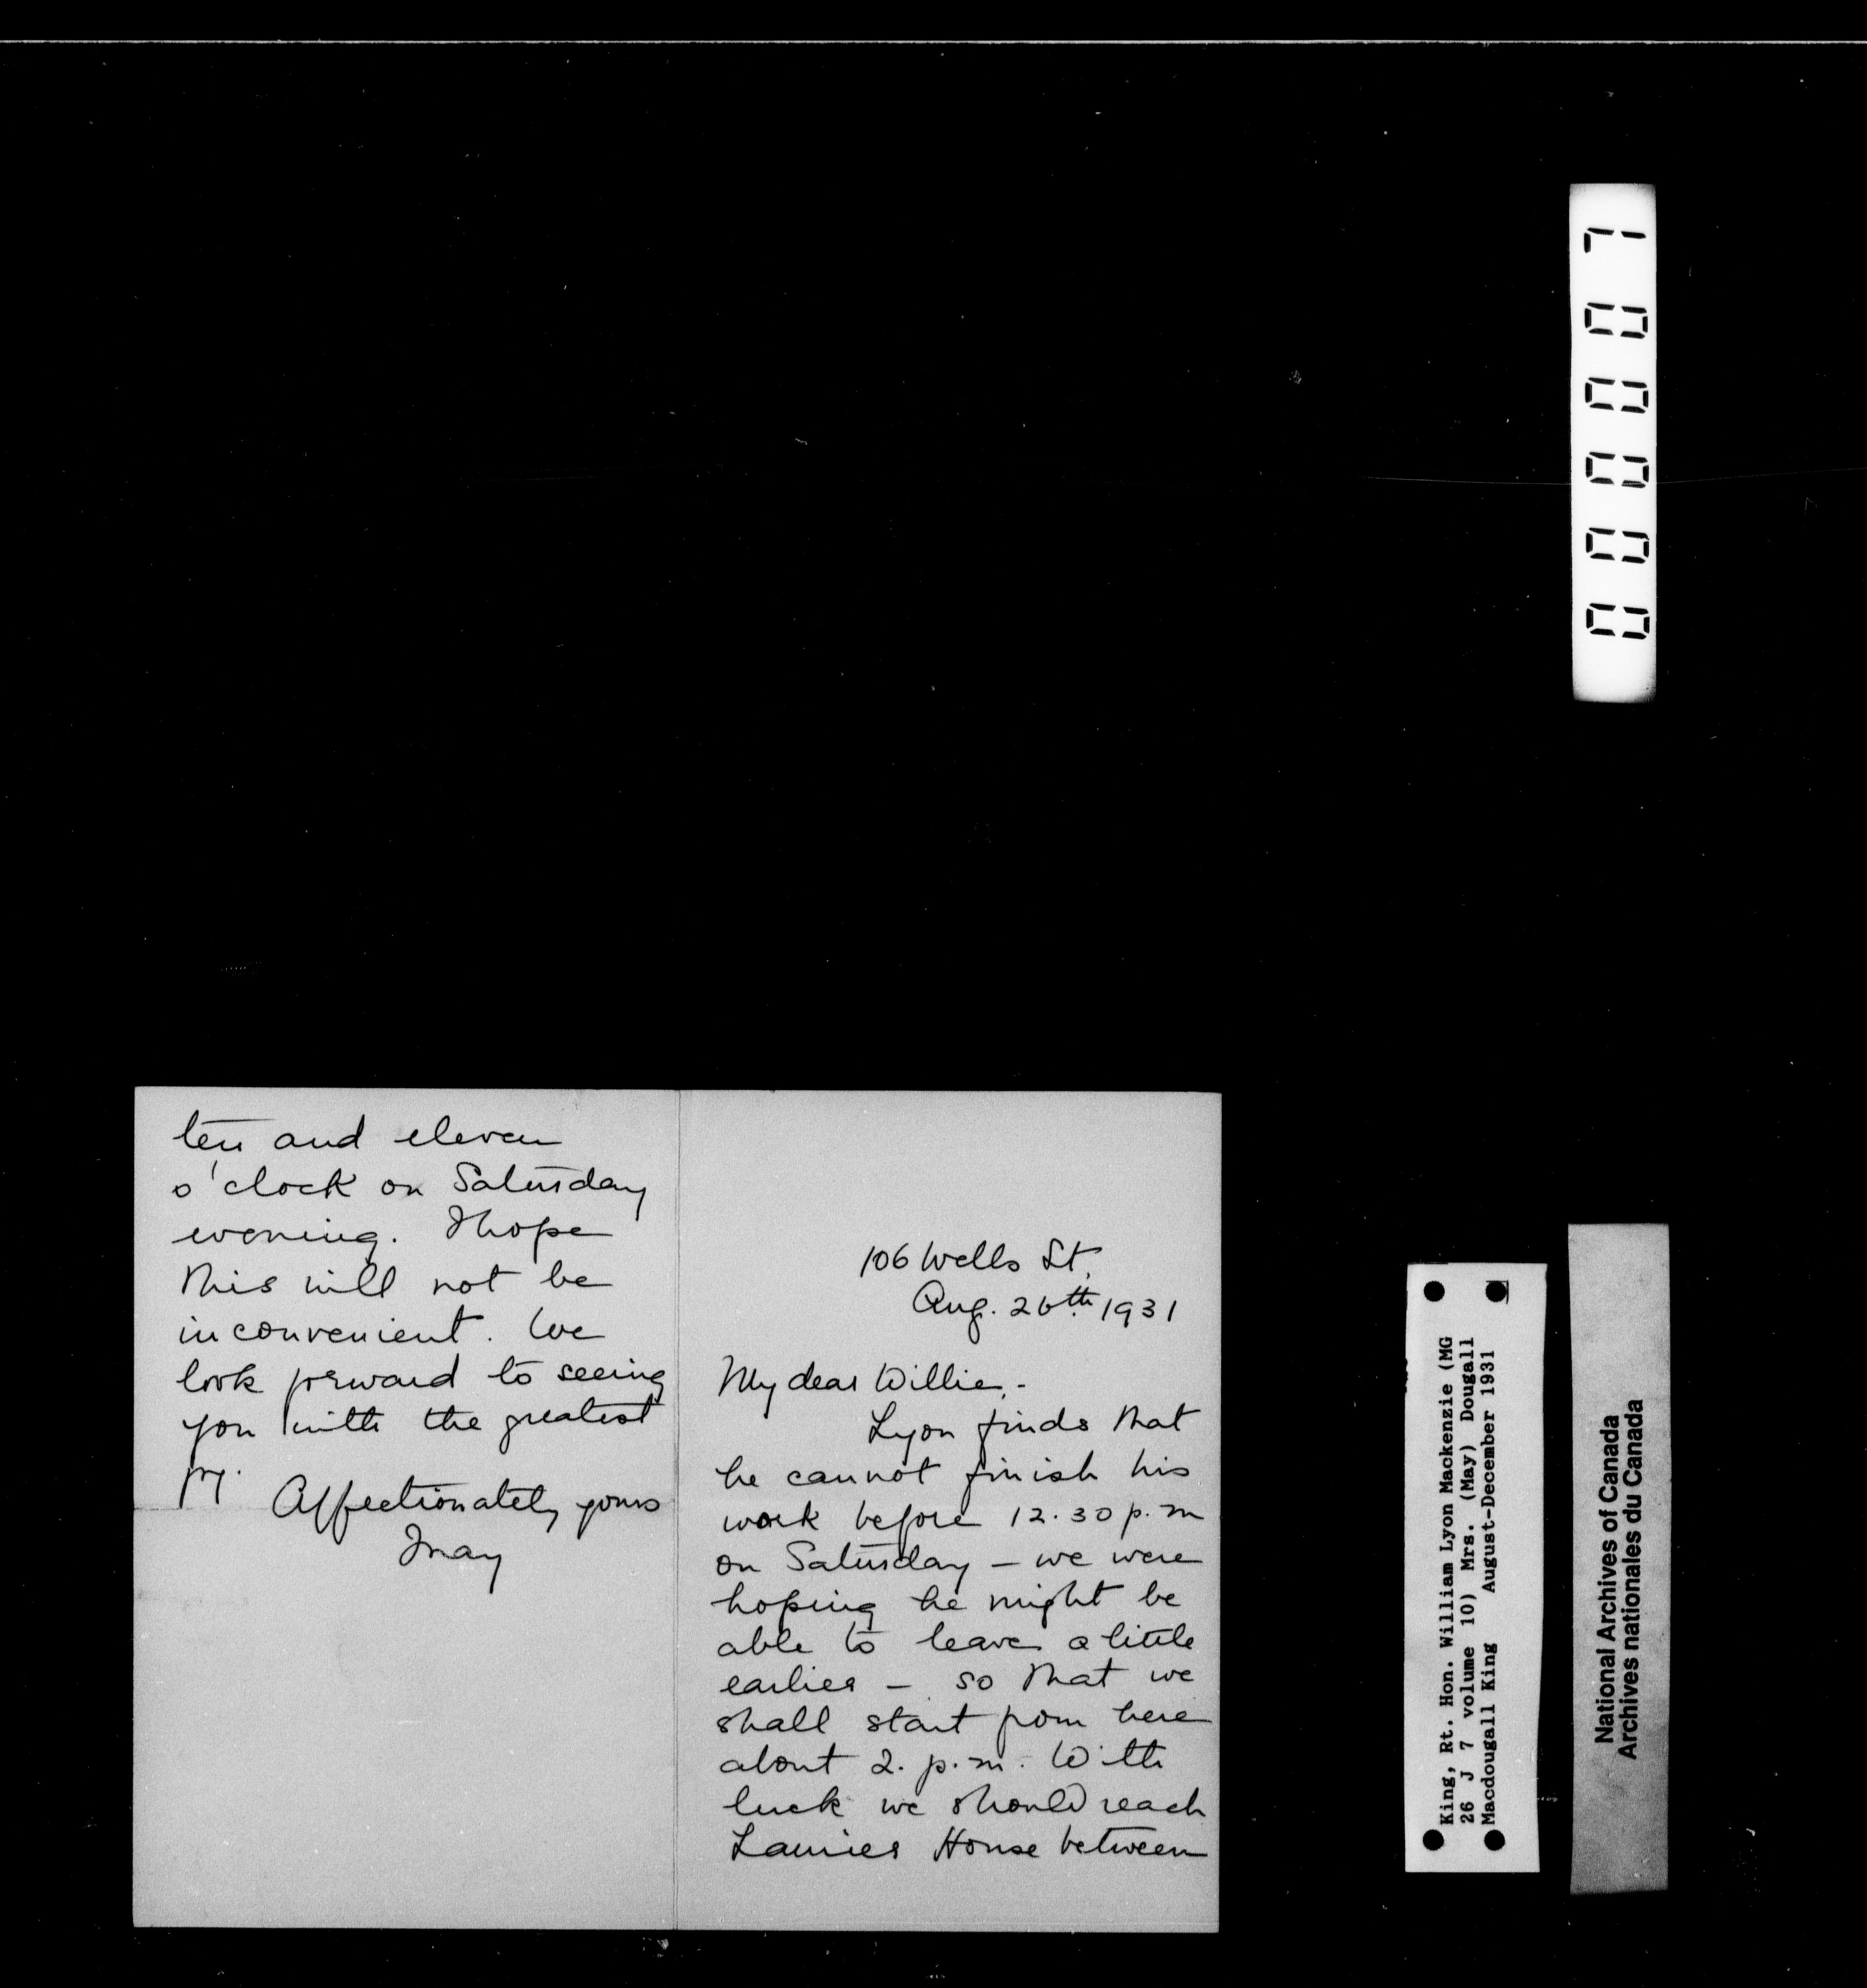 106 Wells St.
Aug. 26th 1931
My dear Willie,-
Lyon finds that
he cannot finish his
work before 12.30 p.m
on Saturday - we were
hoping he might be
able to leave a little
earlier - so that we
shall start from here
about 2. p.m. With
luck we should reach
Laurier House between
ten and eleven
o'clock on Saturday
evening. I hope
this will not be
inconvenient. We
look forward to seeing
you with the greatest
joy.
Affectionately yours
May
000007
King, Rt. Hon. William Lyon Mackenzie (MG
26 J 7 volume 10) Mrs. (May) Dougall
Macdougall King August-December 1931
National Archives of Canada
Archives nationales du Canada